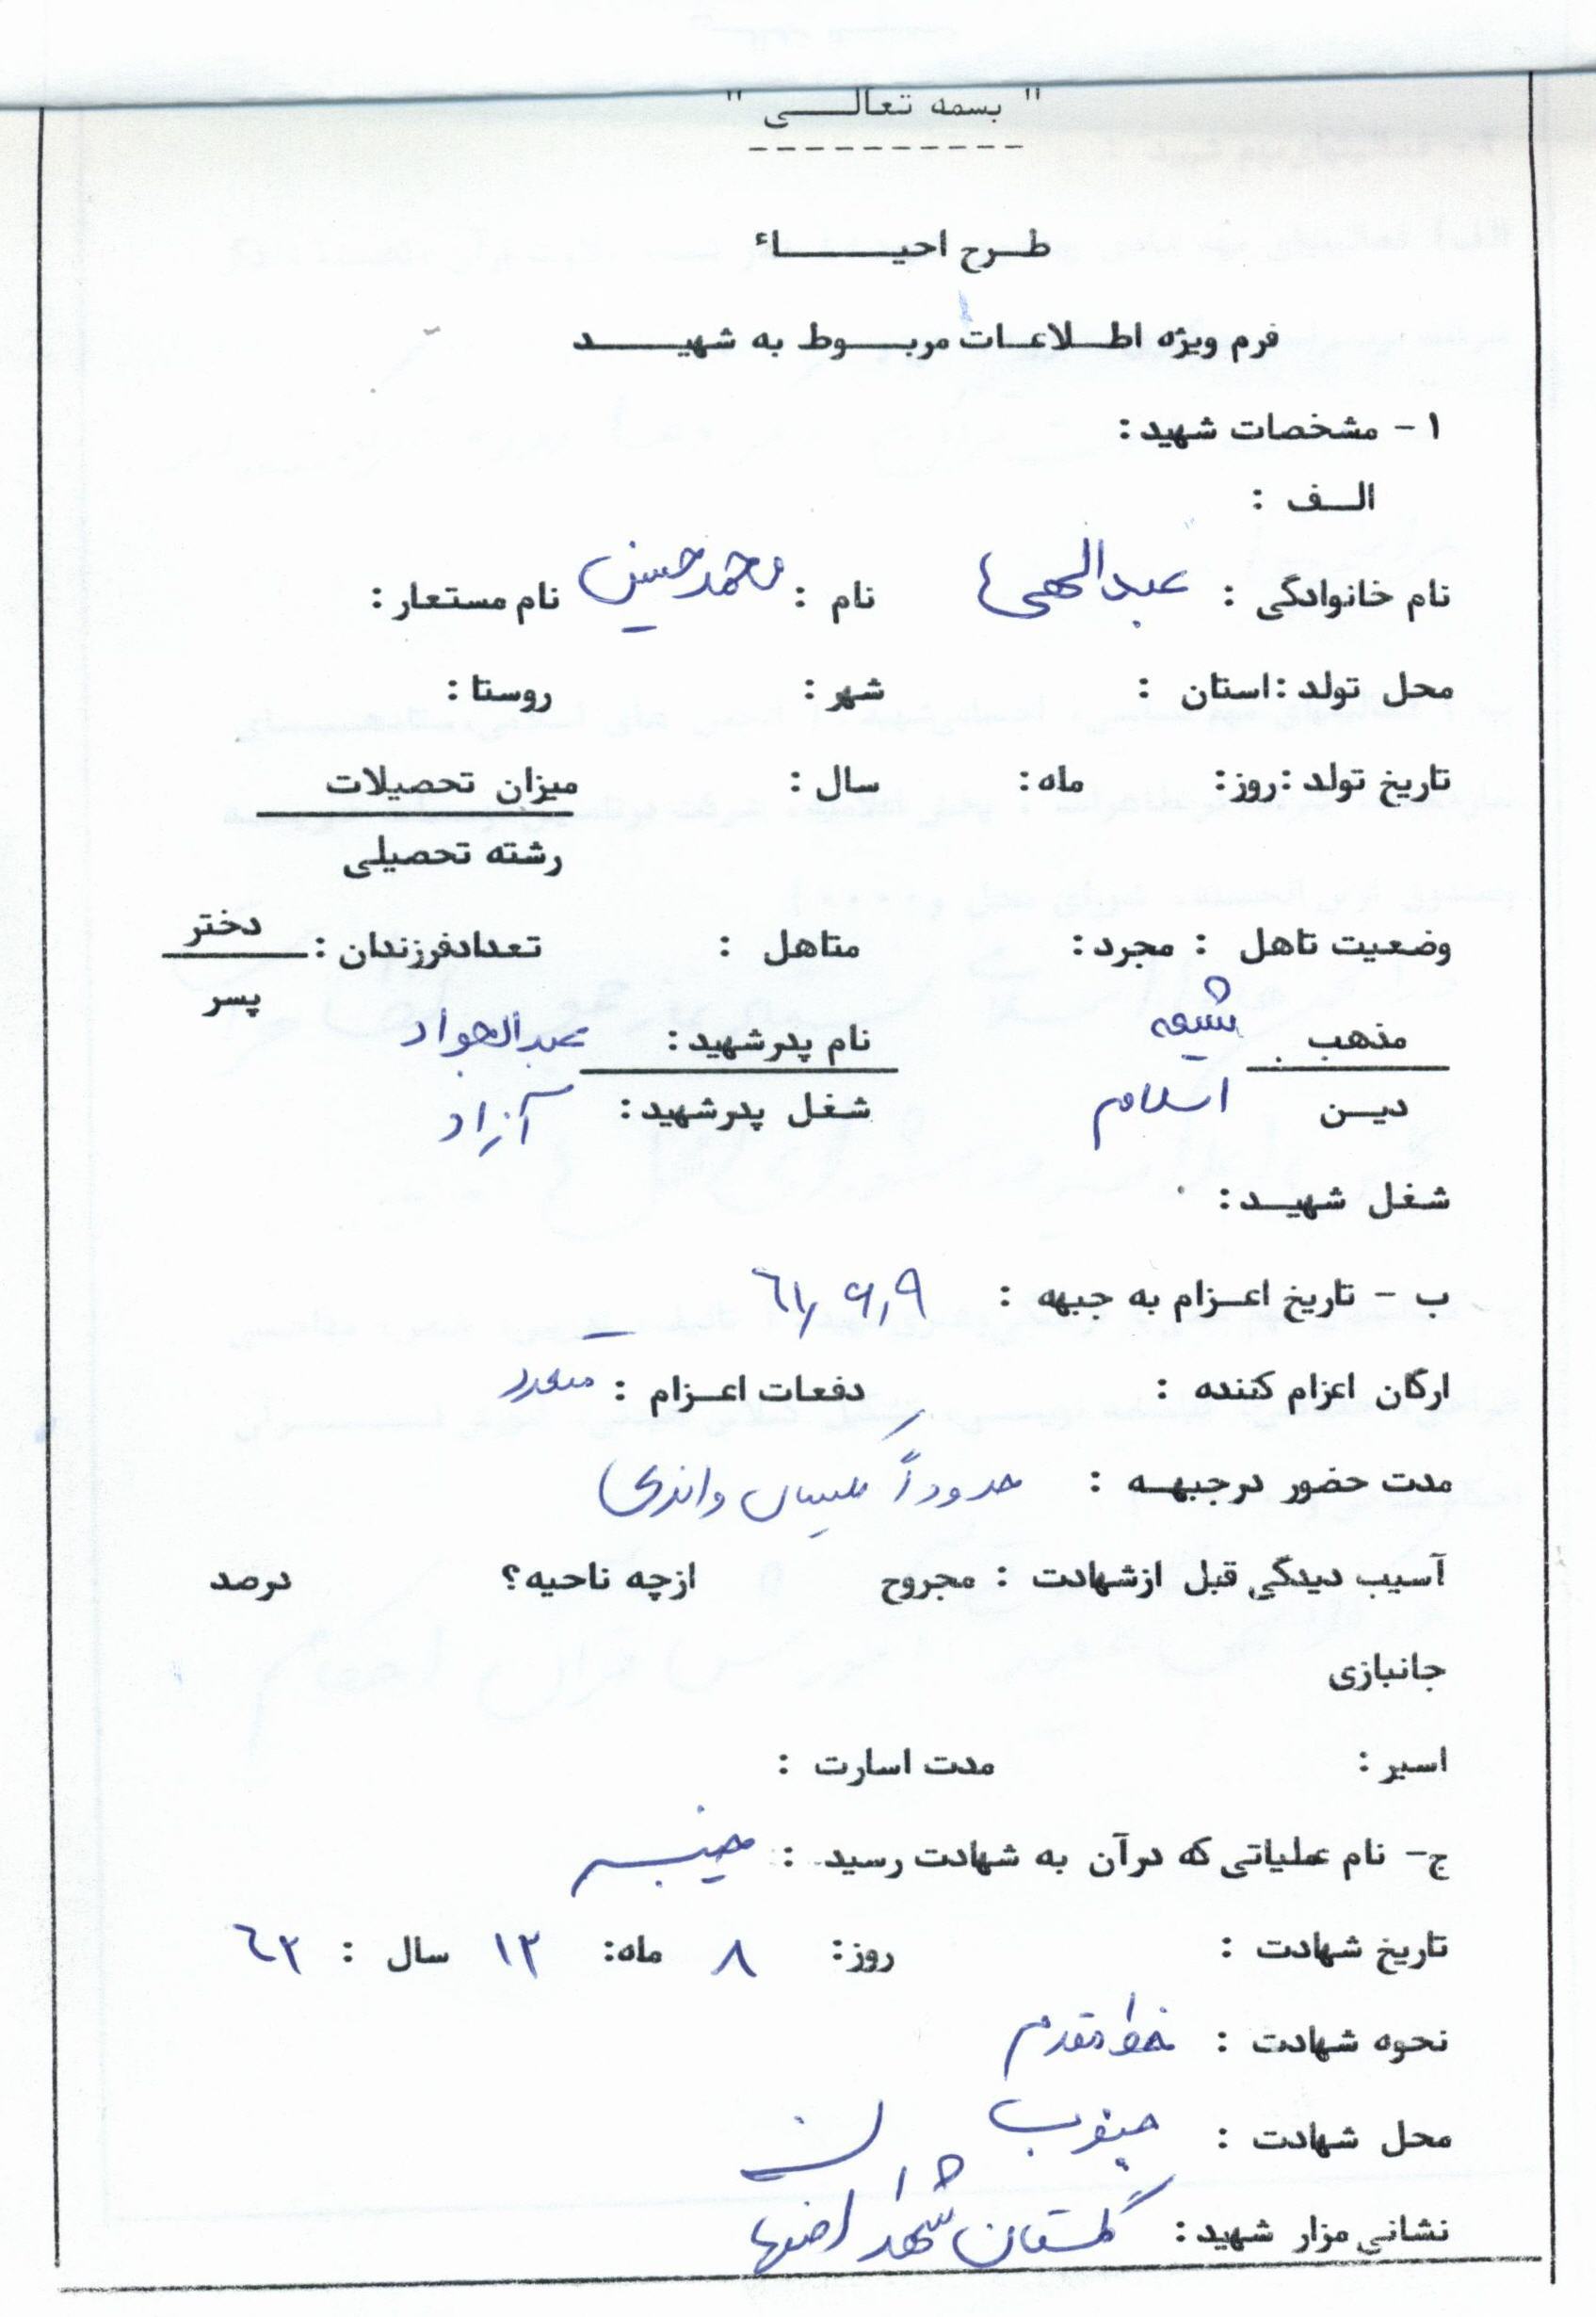 " بسمه تعالی "
طرح احیاء
فرم ویژه اطلاعات مربوط به شهید
۱- مشخصات شهید:
الف :
نام خانوادگی : عبدالهی نام : محمدحسین نام مستعار:
محل تولد :استان : شهر: روستا:
تاریخ تولد :روز: ماه: سال: میزان تحصیلات
رشته تحصیلی
وضعیت تاهل : مجرد: متاهل : تعدادفرزندان: دختر
پسر
مذهب شیعه نام پدرشهید: عبدالجواد
دین اسلام شغل پدرشهید: آزاد
شغل شهید:
ب - تاریخ اعزام به جبهه : ۶۱٫۶٫۹
ارگان اعزام کننده : دفعات اعزام : متعدد
مدت حضور درجبهه : حدوداً یکسال واندی
آسیب دیدگی قبل ازشهادت : مجروح ازچه ناحیه؟ درصد
جانبازی
اسیر: مدت اسارت :
ج- نام عملیاتی که درآن به شهادت رسید : خیبر
تاریخ شهادت : روز: ۸ ماه: ۱۲ سال : ۶۲
نحوه شهادت : خط مقدم
محل شهادت : جنوب
نشانی مزار شهید: گلستان شهدا اصفهان